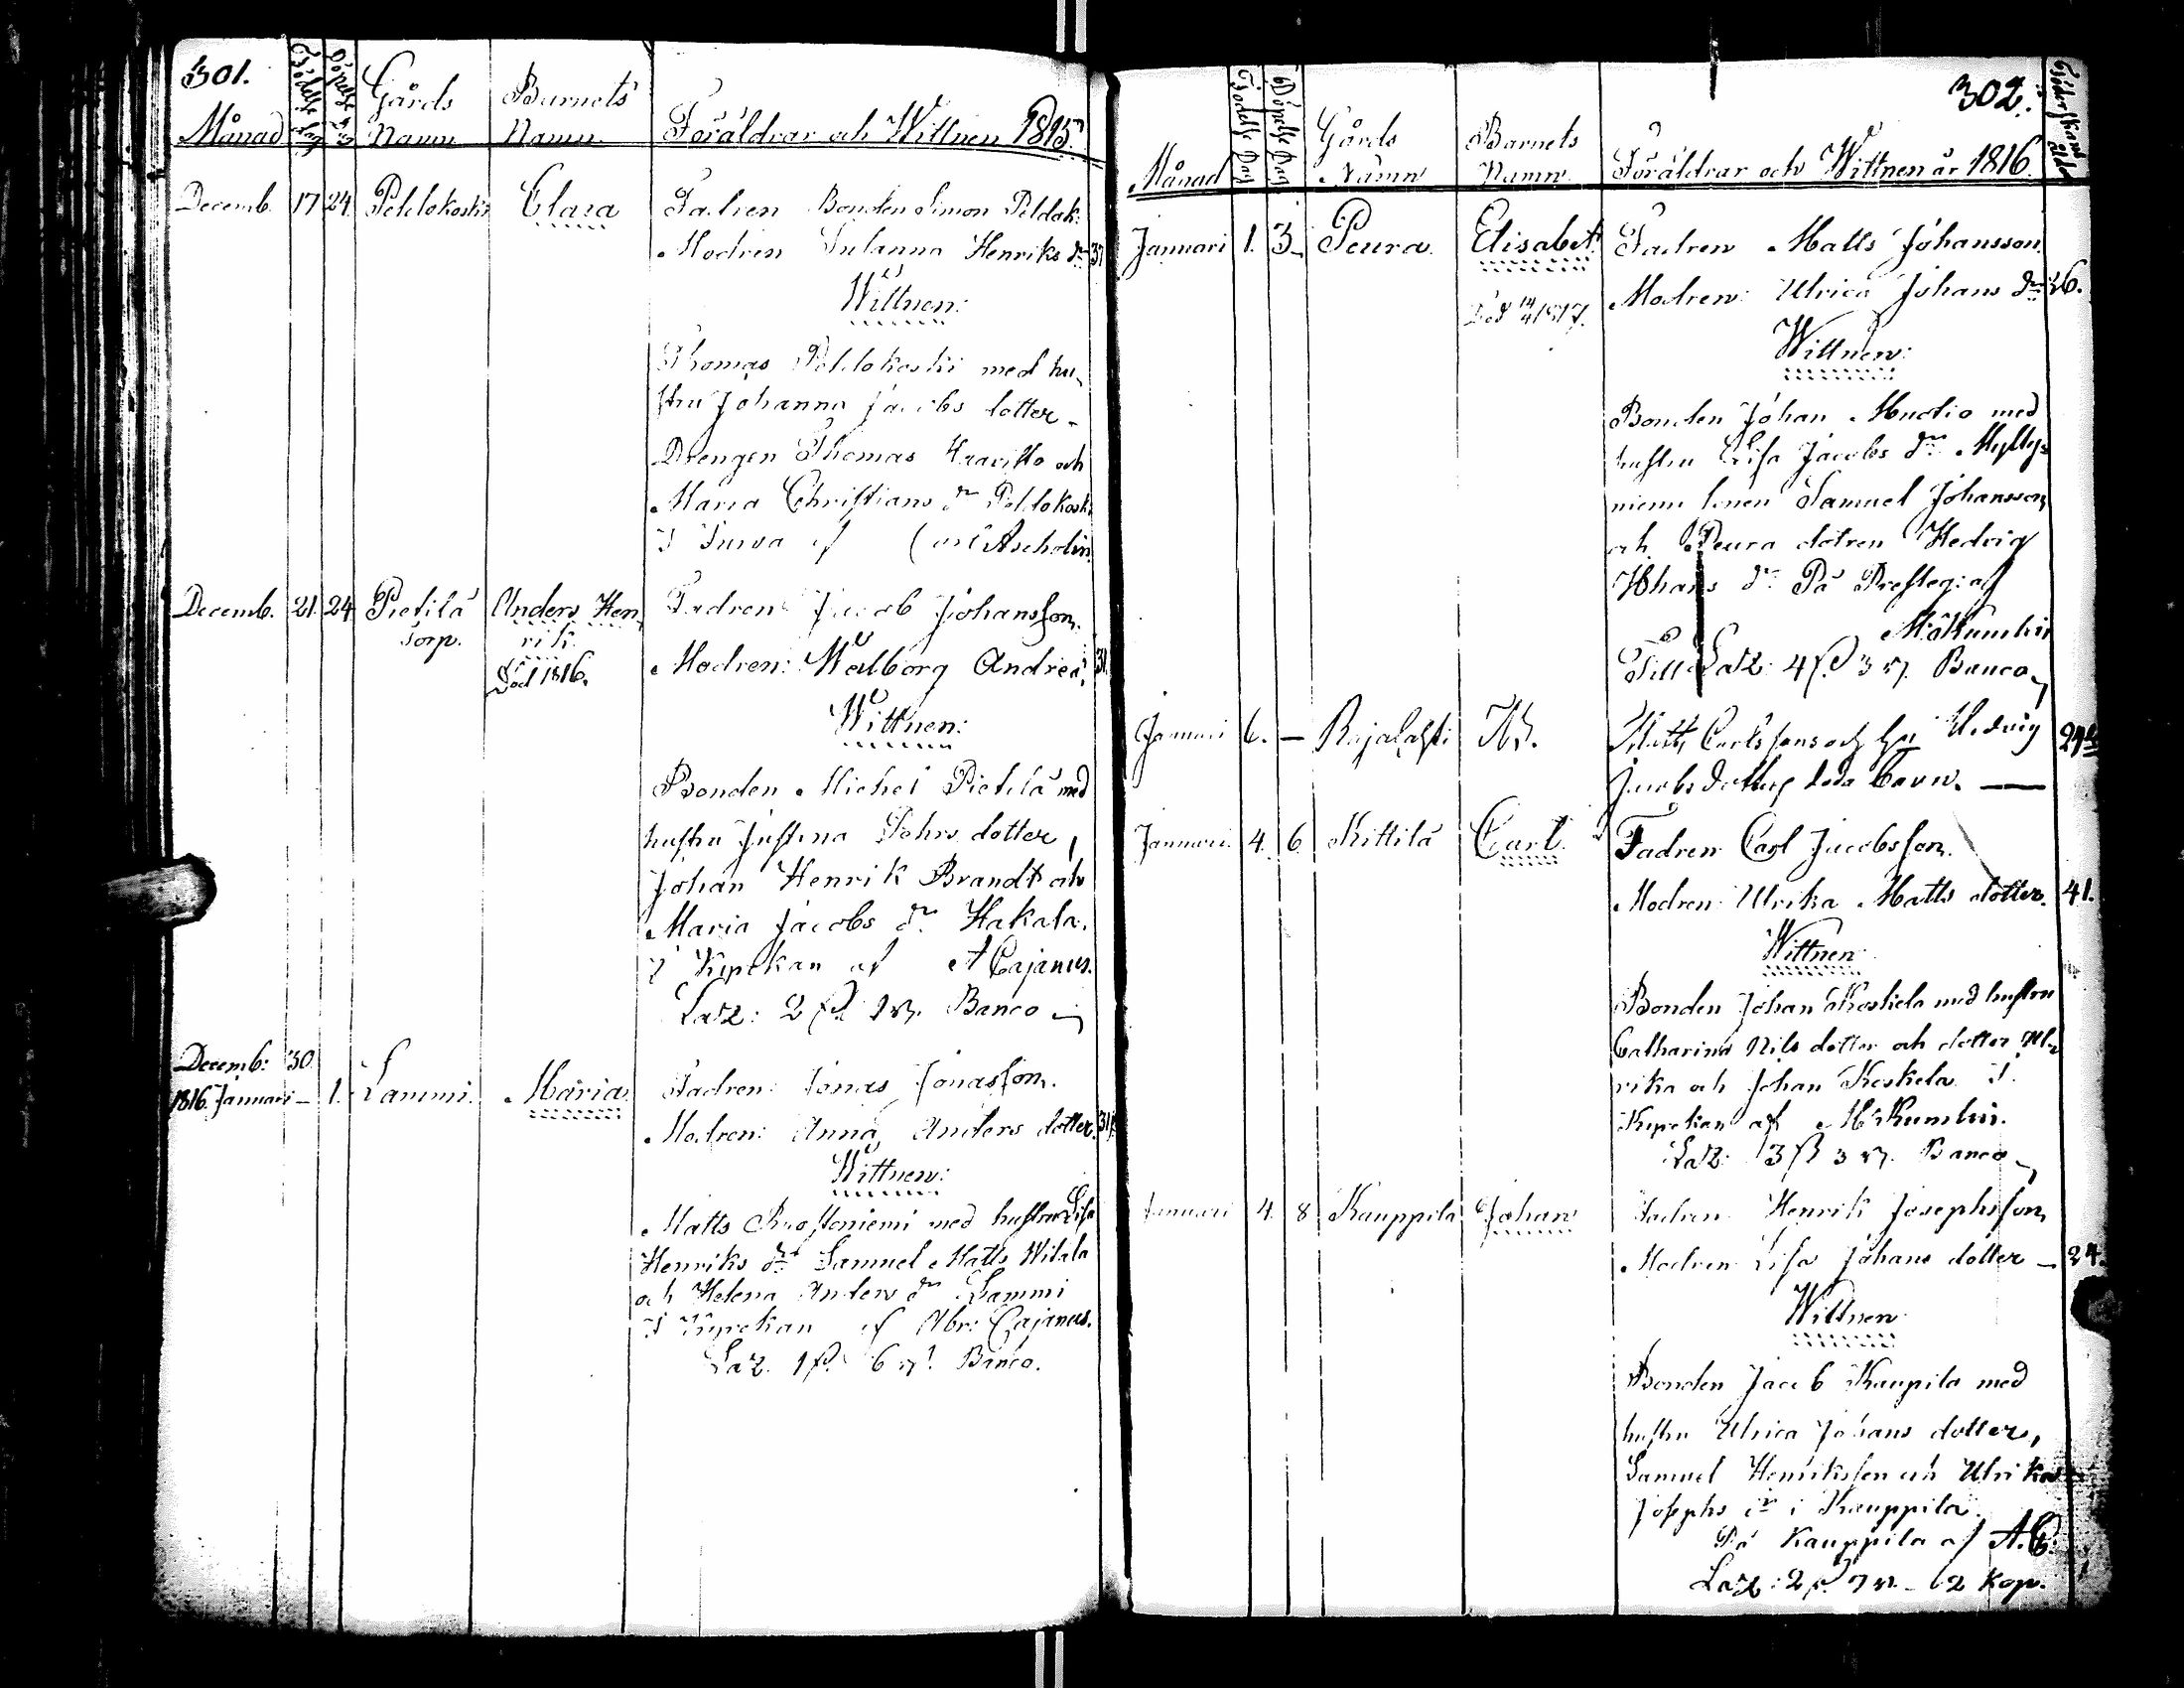 301.
Månad Födelse Dag Döpelse Dag Gårds Namn Barnets Namn Föräldrar och Wittnen 1815.
Decemb. 17 24 Peldokoski Clara Fadren Bonden Simon Peldok:
Modren Susanna Henriks dr 37
Wittnen:
Thomas Peldokoski med hu-
stru Johanna Jacobs dotter
Drengen Thomas Haavisto och
Maria Christians dr Peldokoski
I Surva af Carl Ascholin
Decemb. 21. 24 Pietilä Anders Hen Fadren Jacob Johansson.
torp. rik.
Död 1816. Modren: Walborg Andreä. 31.
Wittnen:
Bonden Michel Pietilä med
hustru Justina Johns dotter,
Johan Henrik Brandt och
Maria Jacobs dr Hakala.
I Kyrckan af A Cajanus.
Laz: 2 ß. 1 rst. Banco
Decemb: 30.
1816. Januari – 1. Lammi. Maria. Fadren: Jonas Jonasson.
Modren: Anna Anders dotter. 31
Wittnen:
Matts Ruostoniemi med hustru Lisa
Henriks dr Samuel Matts Witala
och Helena Anders dr Lammi
I Kyrckan af Abr: Cajanus.
Laz. 1 ß. 6 rst. Banco.
302.
Månad Födelse Dag Döpelse Dag Gårds Namn Barnets Namn Föräldrar och Wittnen år 1816. Föderskans ålder
Januari 1. 3 Peura. Elisabet. Fadren Matts Johansson.
Död 14/4 1817. Modren: Ulrica Johans dr 26.
Wittnen:
Bonden Johan Muotio med
hustru Lisa Jacobs dr Myllys
niemi sonen Samuel Johansson
och Peura dotren Hedvig
Johans dr På Presteg: af
M: Kumlin
Till Laz: 4 ß. 3 rst. Banco
Januari 6. – Rajalahti Matts Carlssons och Hedvig 29
Jacobs dotters döda barn. —
Januari. 4. 6 Kittilä Carl. Fadren Carl Jacobsson.
Modren: Ulrika Matts dotter. 41.
Wittnen:
Bonden Johan Koskela med hustru
Catharina Nils dotter och dotter Ul-
rika och Johan Koskela I.
Kyrckan af M: Kumlin.
Laz: 3 ß 3 rst. Banco
Januari 4. 8 Kauppila Johan Fadren Henrik Josephsson
Modren Lisa Johans dotter – 24.
Wittnen
Bonden Jacob Kaupila med
hustru Ulrica Johans dotter,
Samuel Henriksson och Ulrika
Josephs dr i Kauppila.
På Kauppila af A. C.
Laz: 2 r. 7 st. – 62 kop.